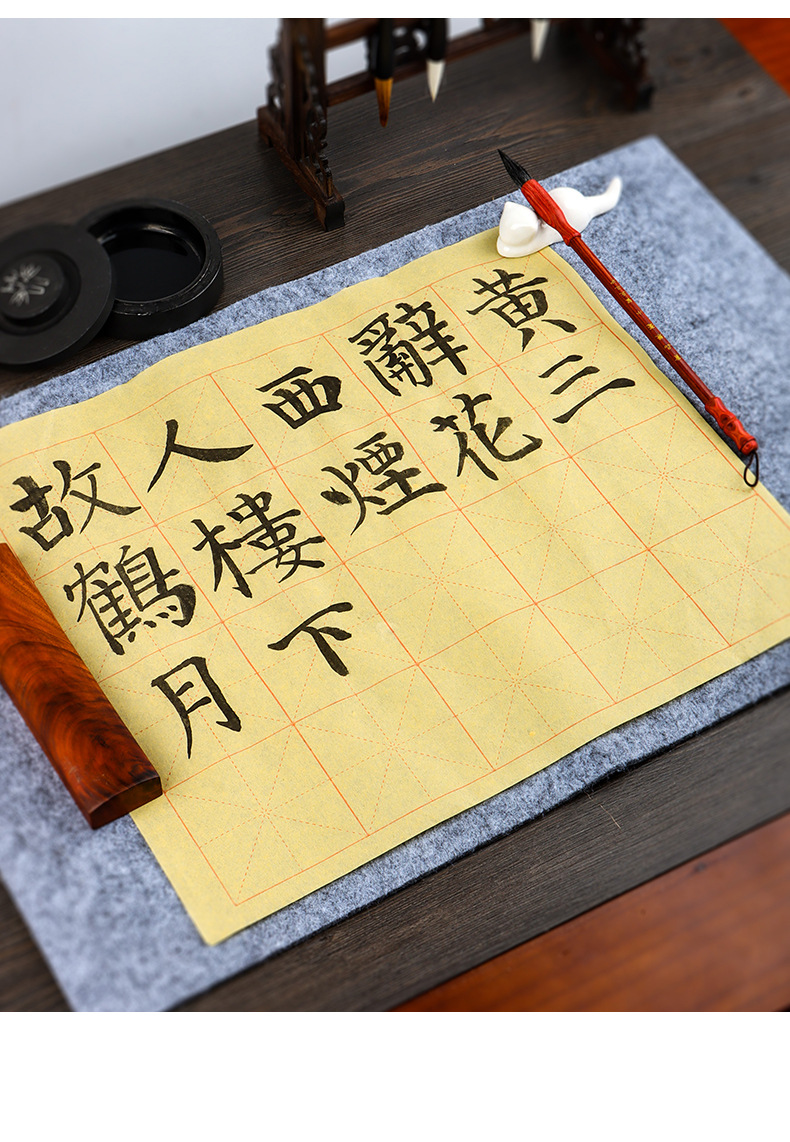 故人西辭黃
鶴樓煙花三
月下